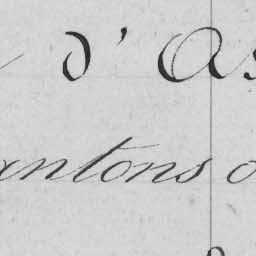 d'As
antons d